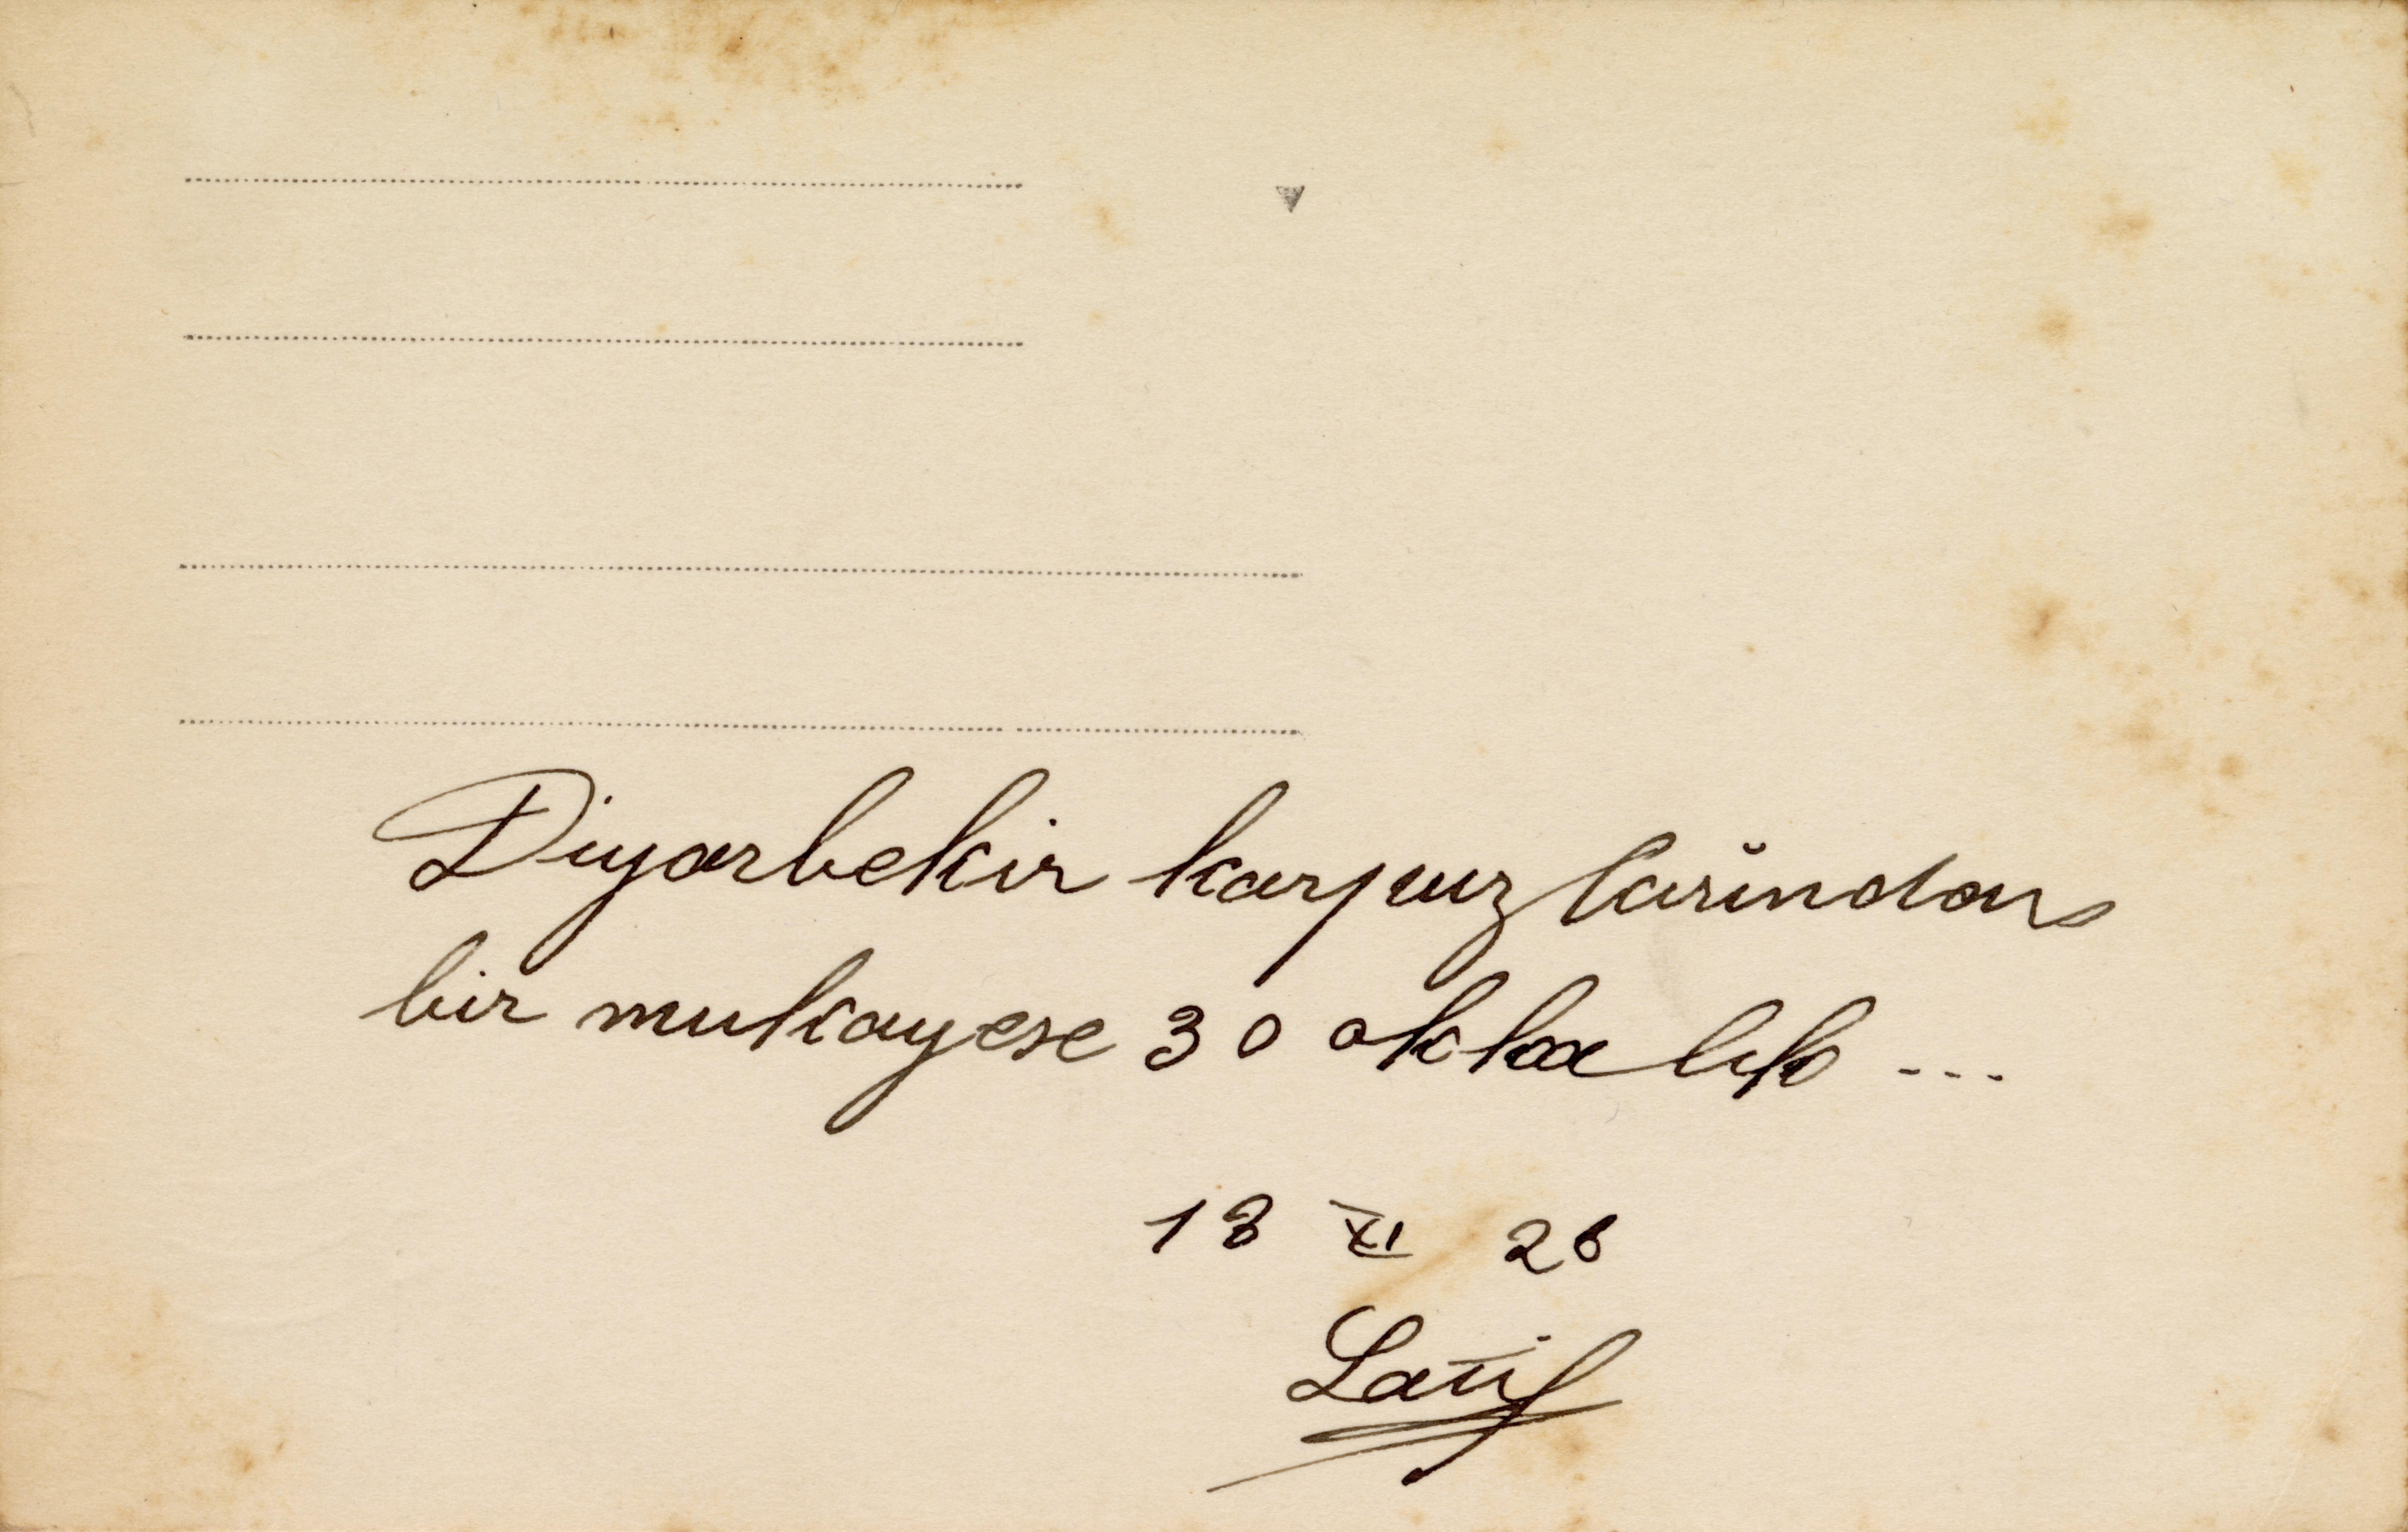 Diyarbekir karpuzlarĭndan
bir mukayese 30 okka lık ...
18 XI 28
Latif